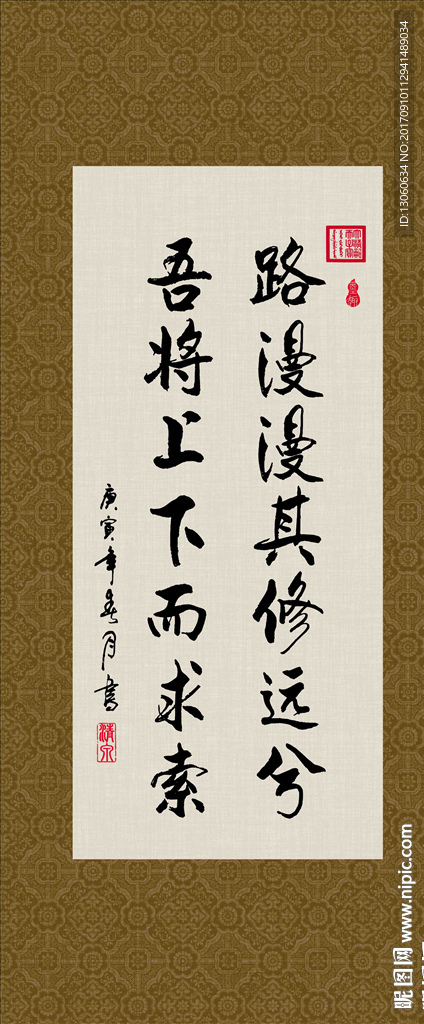 路漫漫其修远兮
吾将上下而求索
庚寅年春月書
清泉
ID:13060634 NO:20170910112941489034
昵图网 www.nipic.com